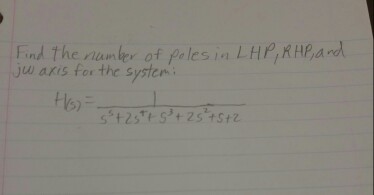 Find the number of poles in LHP, RHP, and
jω axis for the system:
H(s) = 1 / (s⁵+2s⁴+s³+2s²+s+2)